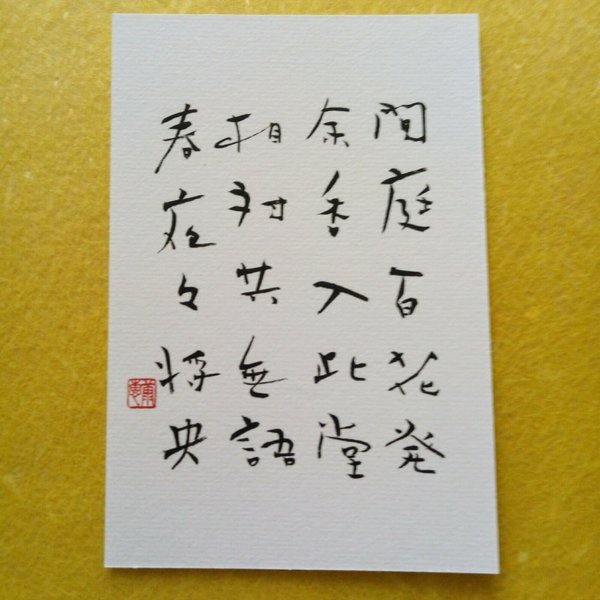 間庭百花発
余香入此堂
相対共無語
春夜々将央